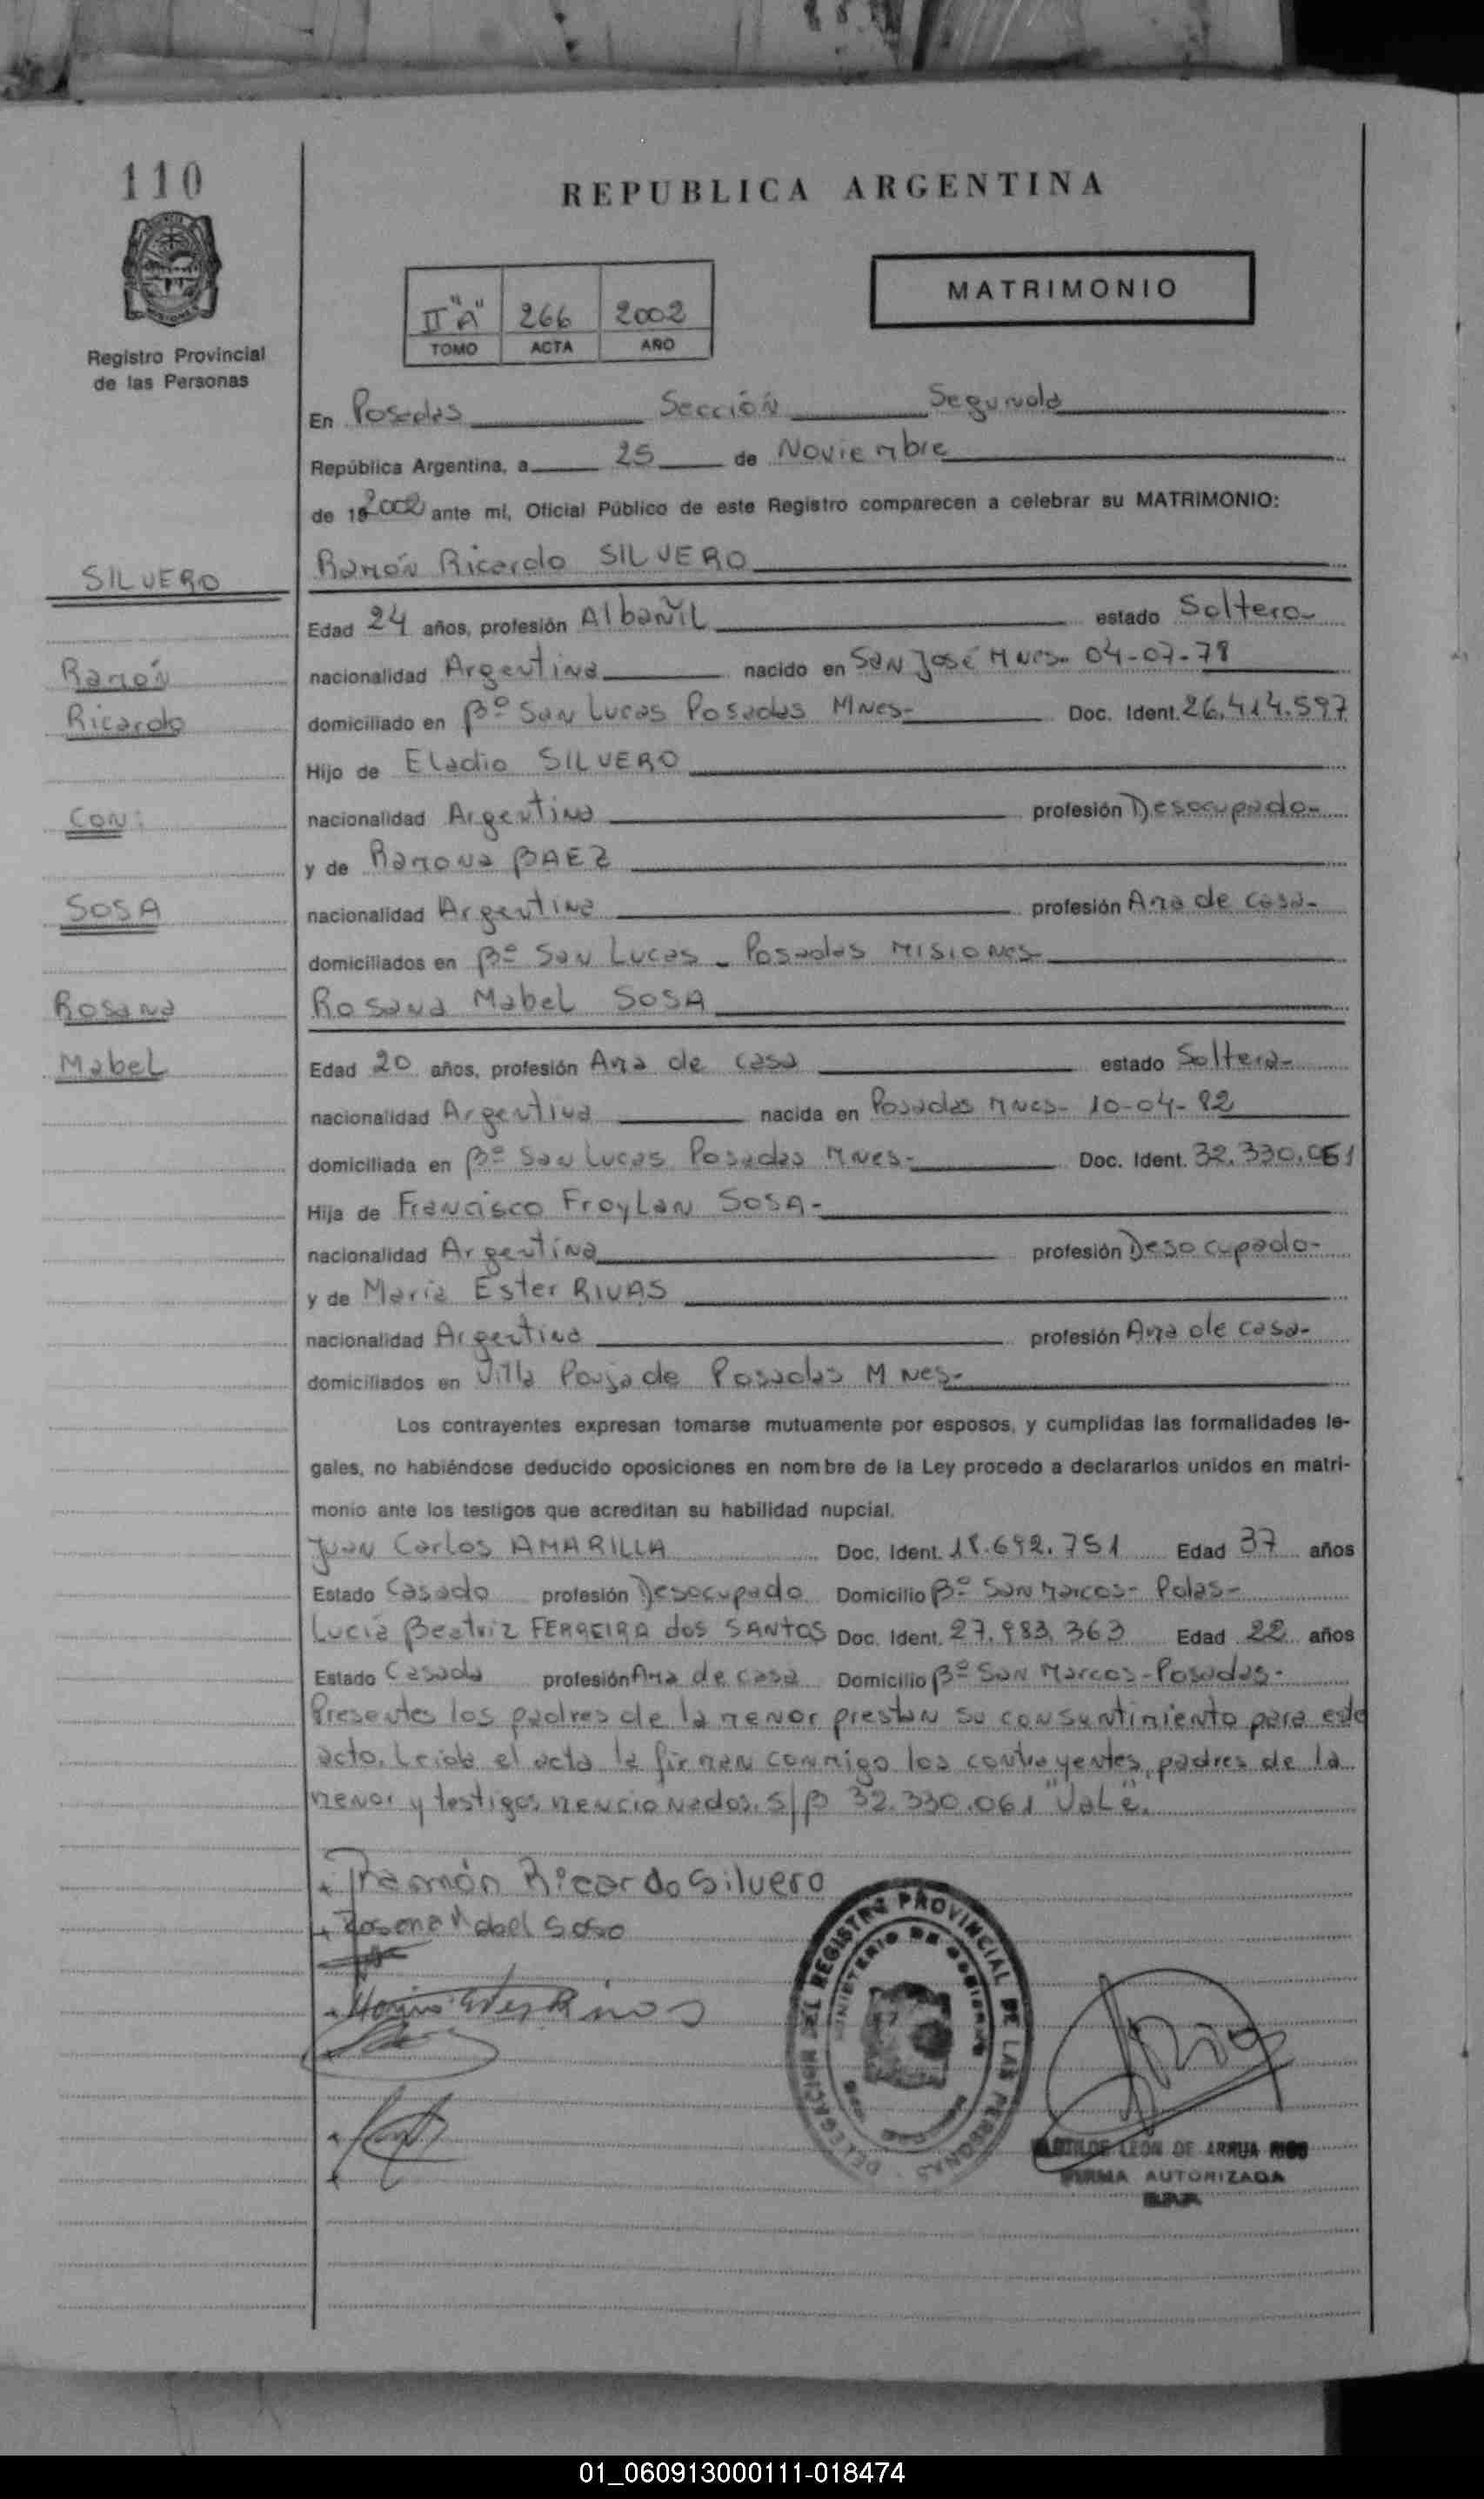 110
REPUBLICA ARGENTINA
II "A" 266 2002
TOMO ACTA AÑO
MATRIMONIO
Registro Provincial
de las Personas
En Posadas Sección Segunda
República Argentina, a 25 de Noviembre
de 2002 ante mí, Oficial Público de este Registro comparecen a celebrar su MATRIMONIO:
SILVERO
Ramón
Ricardo
CON:
SOSA
Rosana
Mabel
Ramón Ricardo SILVERO
Edad 24 años, profesión Albañil estado Soltero-
nacionalidad Argentina nacido en San José Mnes- 04-07-78
domiciliado en Bº San Lucas Posadas Mnes- Doc. Ident. 26.414.597
Hijo de Eladio SILVERO
nacionalidad Argentina profesión Desocupado-
y de Ramona BAEZ
nacionalidad Argentina profesión Ama de casa-
domiciliados en Bº San Lucas - Posadas MISIONES
Rosana Mabel SOSA
Edad 20 años, profesión Ama de casa estado Soltera-
nacionalidad Argentina nacida en Posadas Mnes- 10-04-82
domiciliada en Bº San Lucas Posadas Mnes- Doc. Ident. 32.330.061
Hija de Francisco Froylan SOSA-
nacionalidad Argentina profesión Desocupado-
y de María Ester RIVAS
nacionalidad Argentina profesión Ama de casa-
domiciliados en Villa Poujade Posadas Mnes-
Los contrayentes expresan tomarse mutuamente por esposos, y cumplidas las formalidades le-
gales, no habiéndose deducido oposiciones en nombre de la Ley procedo a declararlos unidos en matri-
monio ante los testigos que acreditan su habilidad nupcial.
Juan Carlos AMARILLA Doc. Ident. 18.692.751 Edad 37 años
Estado Casado profesión Desocupado Domicilio Bº San Marcos- Pdas-
Lucía Beatriz FERREIRA dos SANTOS Doc. Ident. 27.983.363 Edad 22 años
Estado Casada profesión Ama de casa Domicilio Bº San Marcos-Posadas-
Presentes los padres de la menor prestan su consentimiento para este
acto. Leida el acta la firman conmigo los contrayentes, padres de la
menor y testigos mencionados. S/B 32.330.061 "Vale".
Ramón Ricardo Silvero
Rosana Mabel Sosa
DELEGACION DEL REGISTRO PROVINCIAL DE LAS PERSONAS
MINISTERIO DE GOBIERNO
LEON DE ARRUA
FIRMA AUTORIZADA
01_060913000111-018474